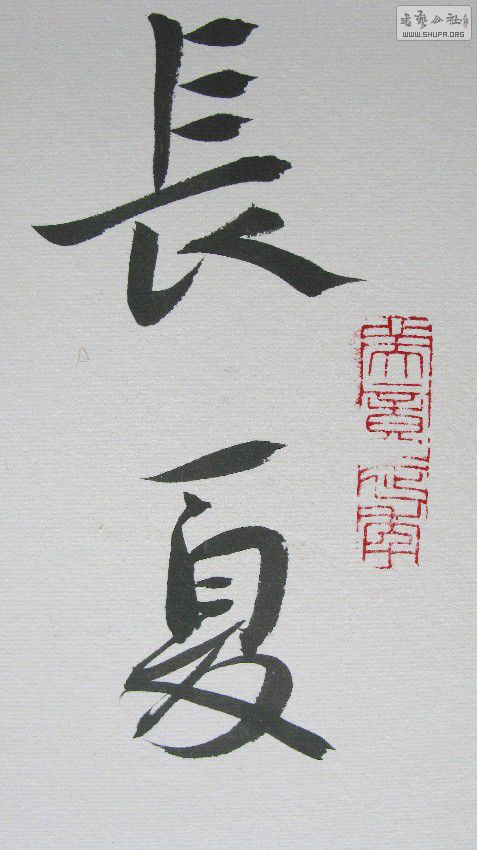 長夏
书艺公社
WWW.SHUFA.ORG